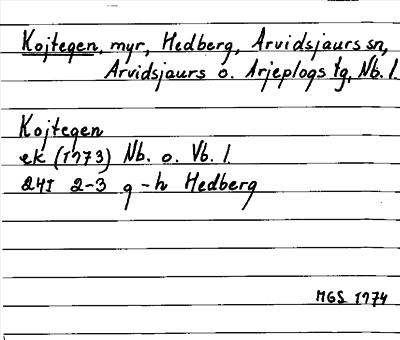 Kojtegen, myr, Hedberg, Arvidsjaurs sn,
Arvidsjaurs o. Arjeplogs tg, Nb. l.
Kojtegen
ek (1973) Nb. o. Vb. l.
24I 2-3 g-h Hedberg
MGS 1974